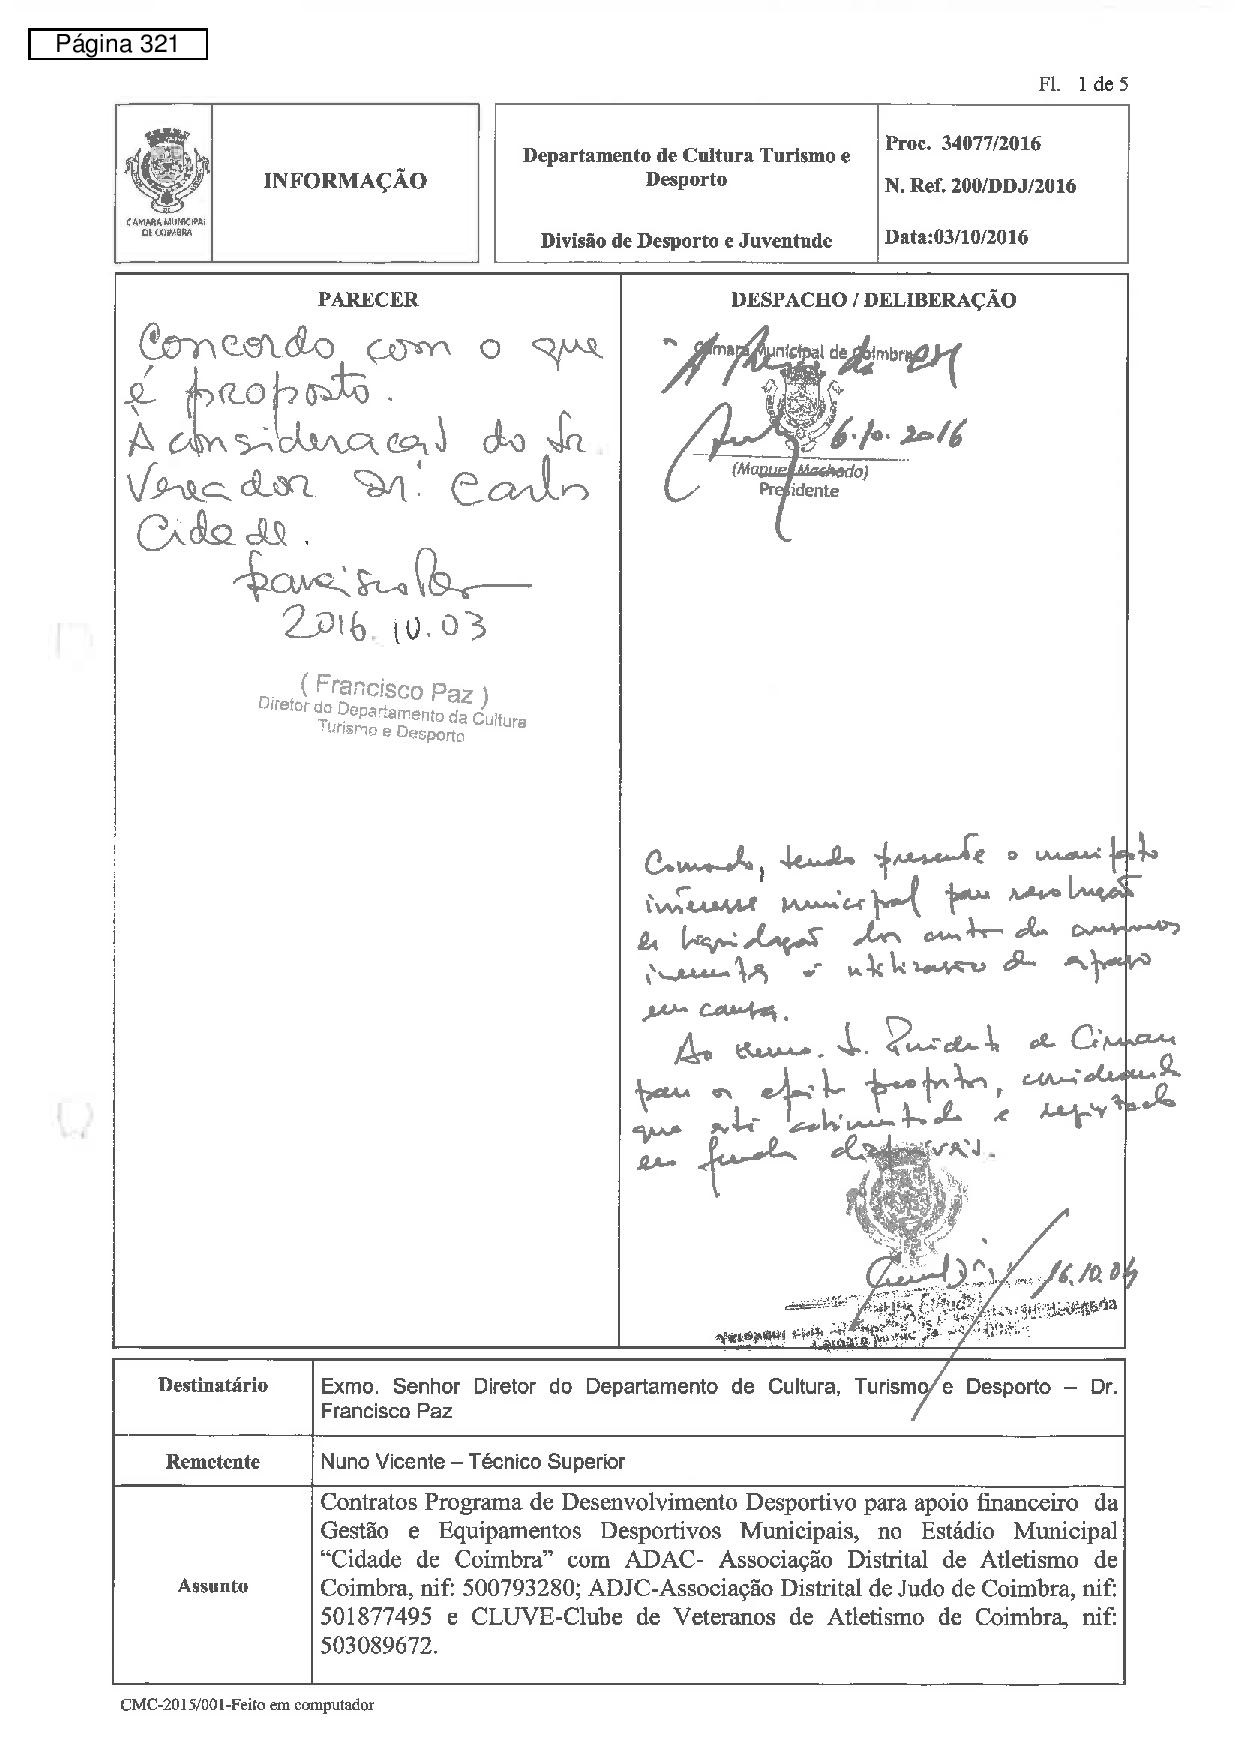 Página 321
Fl. 1 de 5
CAMARA MUNICIPAL
DE COIMBRA
INFORMAÇÃO
Departamento de Cultura Turismo e
Desporto
Divisão de Desporto e Juventude
Proc. 34077/2016
N. Ref. 200/DDJ/2016
Data:03/10/2016
PARECER
Concordo com o que
é proposto.
À consideração do Sr.
Vereador Dr. Carlos
Cidade.
Francisco Paz
2016.10.03
( Francisco Paz )
Diretor do Departamento da Cultura
Turismo e Desporto
DESPACHO / DELIBERAÇÃO
Câmara Municipal de Coimbra
6.10.2016
(Manuel Machado)
Presidente
Concordo, tendo presente o manifesto
interesse municipal para resolução
e liquidação dos
utilização
em causa.
Ao Exmo. Sr. Presidente da Câmara
para o efeito proposto, considerando
que está cabimentado e registado
em fundos disponíveis.
16.10.04
Destinatário
Exmo. Senhor Diretor do Departamento de Cultura, Turismo e Desporto – Dr.
Francisco Paz
Remetente
Nuno Vicente – Técnico Superior
Assunto
Contratos Programa de Desenvolvimento Desportivo para apoio financeiro da
Gestão e Equipamentos Desportivos Municipais, no Estádio Municipal
“Cidade de Coimbra” com ADAC- Associação Distrital de Atletismo de
Coimbra, nif: 500793280; ADJC-Associação Distrital de Judo de Coimbra, nif:
501877495 e CLUVE-Clube de Veteranos de Atletismo de Coimbra, nif:
503089672.
CMC-2015/001-Feito em computador